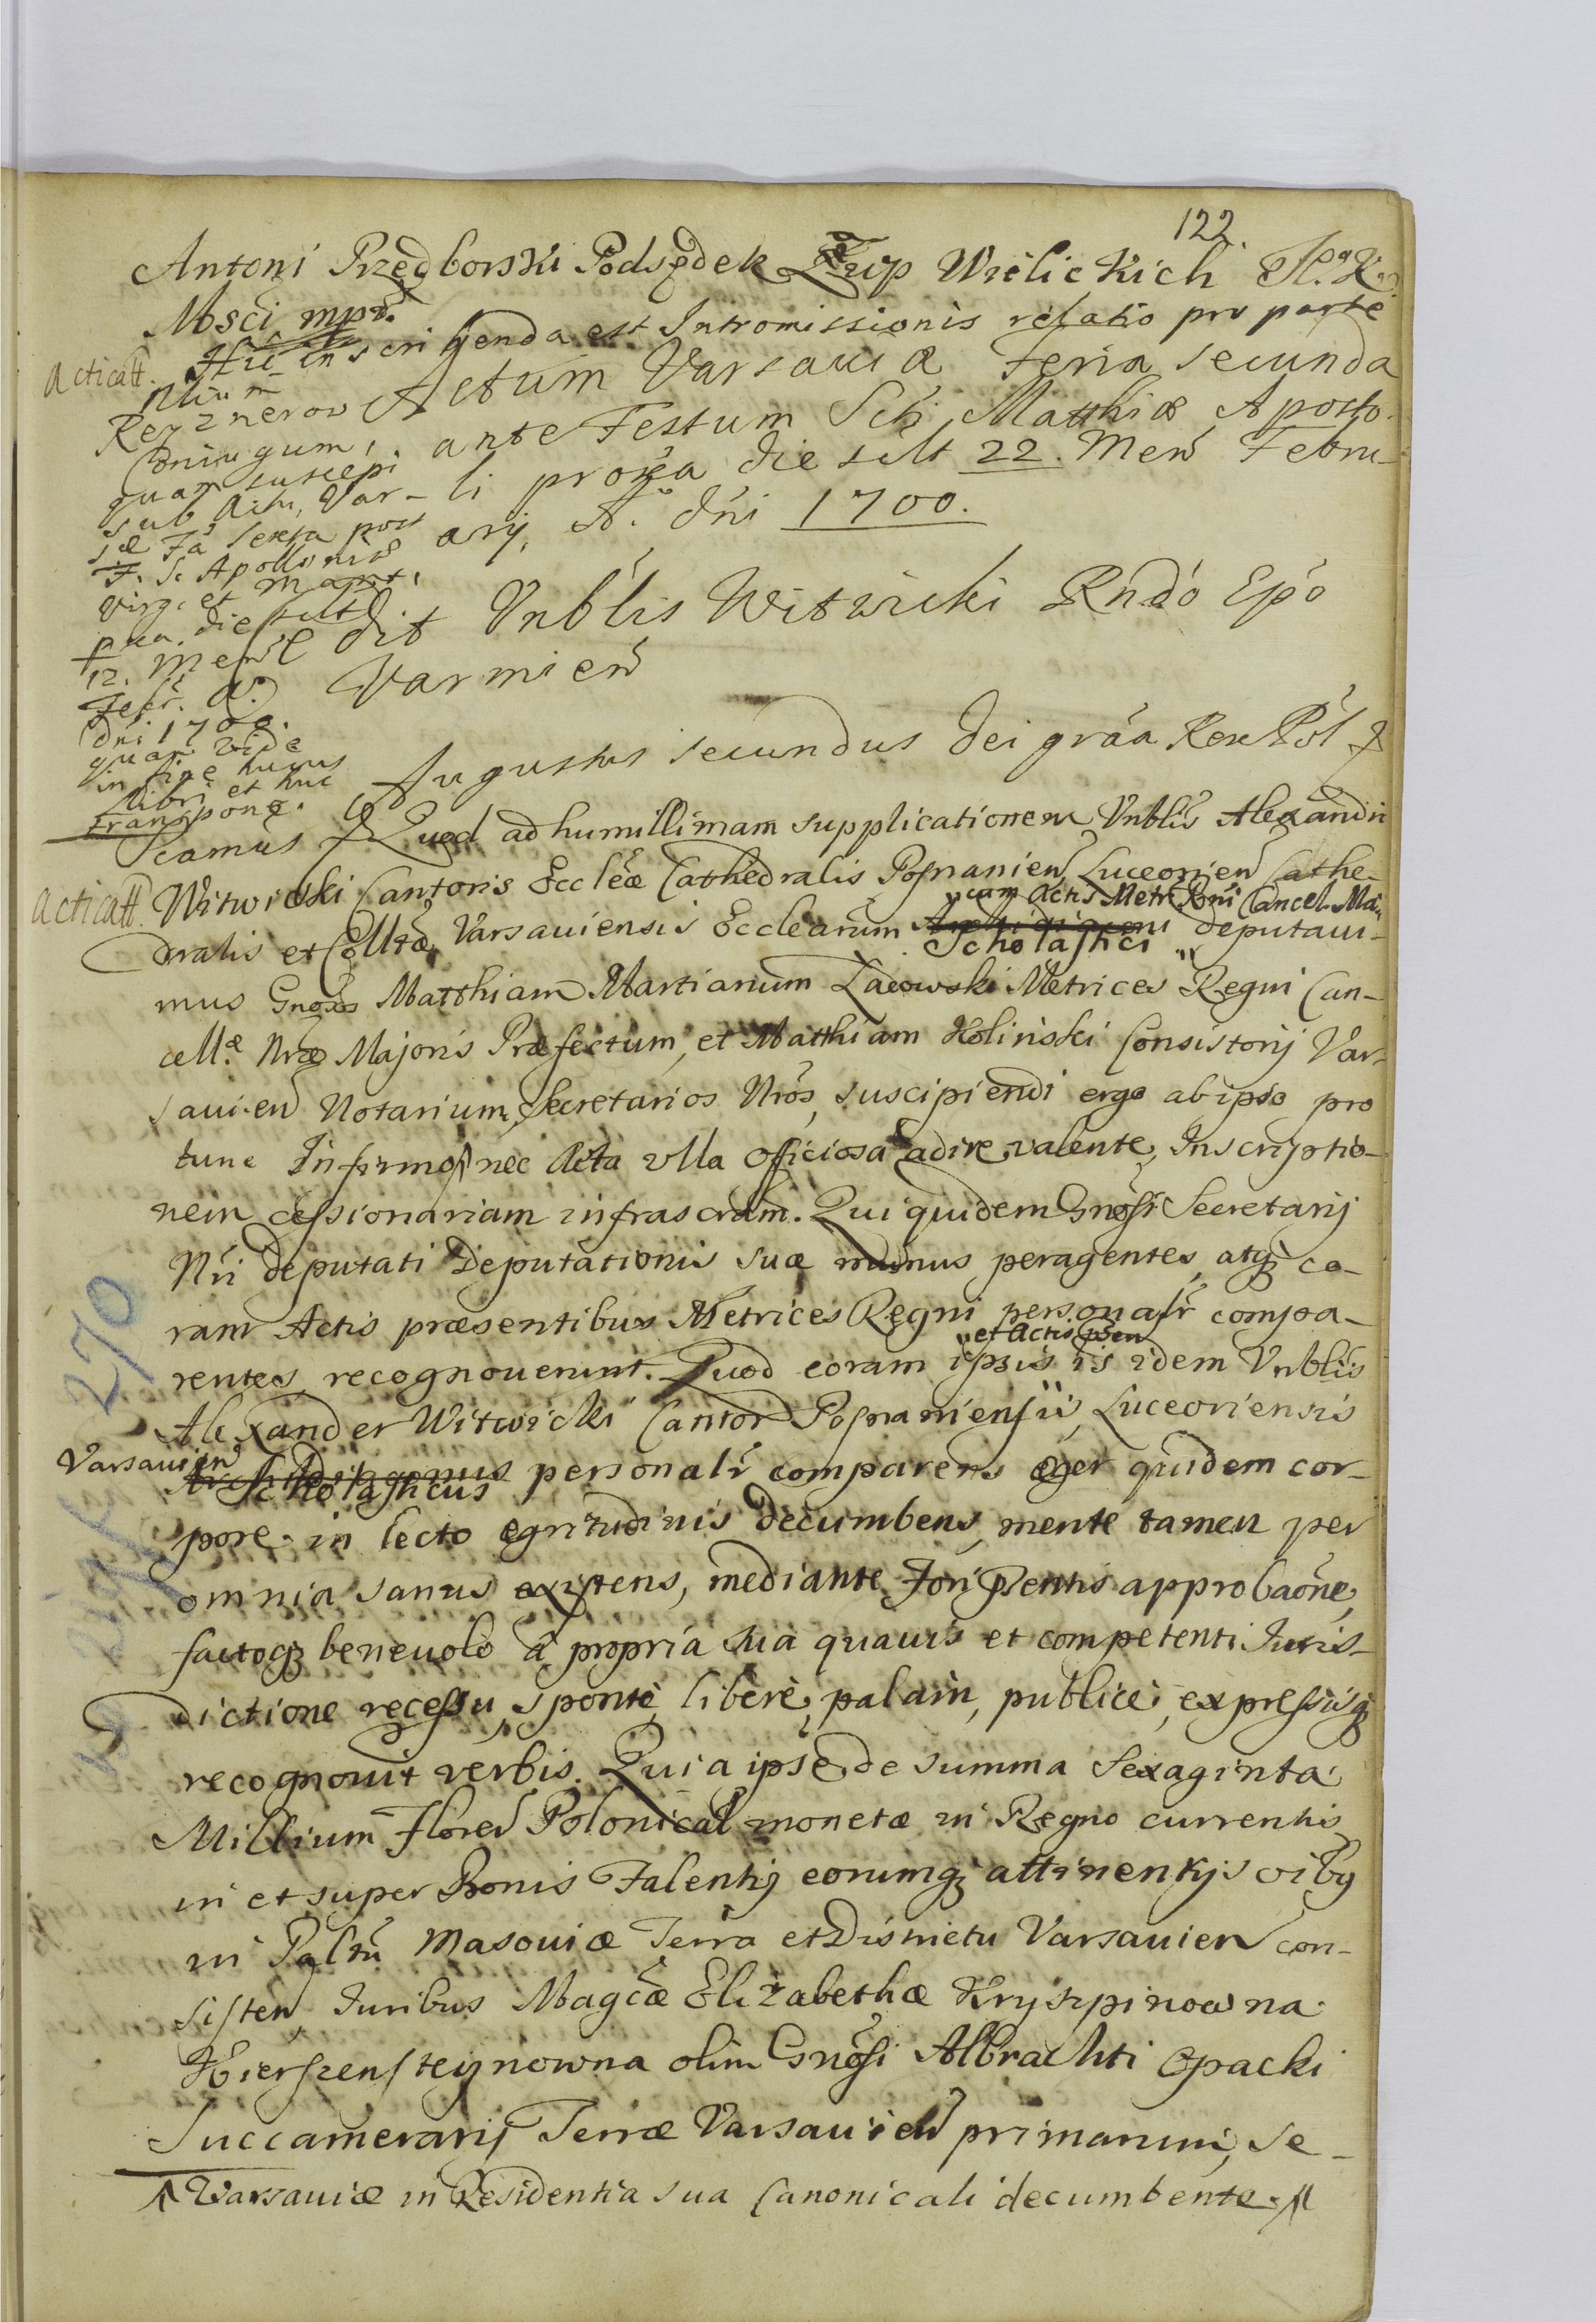 122
Antoni Przedborski Podsędek Żup Wielickich J. K.
Msci mpr.
Hic inscribenda est Intromissionis relatio pro parte
Acticatt.
Nliūm
Reyznerow
Coniugum,
quam suscepi
sub Actu, Var-
sæ Fâ sexta post
F. S. Apolloniæ
virg. et Mart.
pxa. die scilt
12. Mens
Febr. A.
dni 1700.
quam vide
in fine huius
Libri et huc
transpone.
Actum Varsaviæ Feria secunda
ante Festum Scti Matthiæ Aposto-
li proxa die scilt 22. Men Febru-
arij, A. dni 1700.
Cedit Vnblis Witwicki Rndo Epo
Varmien
Augustus secundus Dei gráa Rex Pol &
Scamus & Quod ad humillimam supplicationem Vnblis Alexandri
Acticatt. Witwicki Cantoris Eccleæ Cathedralis Posnanien, Luceorien Cathe-
dralis et Colltæ Varsauiensis Eccleārum Archidiaconi Scholastici "cum Actis Metr. Rni Cancel. Ma." deputaui-
mus Gnosos Matthiam Martianum Ładowski Metrices Regni Can-
cellæ Nræ Majoris Præfectum, et Matthiam Holinski Consistorij Var-
sauien Notarium, Secretarios Nros, suscipiendi ergo ab ipso pro
tunc Infirmo, nec Acta vlla officiosa adire valente, Inscriptio-
nem cessionariam infrascram. Qui quidem Gnosi Secretarij
Nri deputati Deputationis suæ munus peragentes, atq; co-
ram Actis præsentibus Metrices Regni personalr compa-
rentes, recognouerunt. Quod coram ipsis "et Actis psen" is idem Vnblis
Alexander Witwicki Cantor Posnaniensis, Luceoriensis
Varsauien Archidiaconus Scholasticus personalr comparens æger quidem cor-
pore in lecto egritudinis decumbens, mente tamen per
omnia sanus existens, mediante Fori psentis approbaōne,
factoq; beneuolo à propria sua quauis et competenti Juris-
dictione recessu, sponte, libere, palam, publice, expressisq;
recognouit verbis. Quia ipse de summa sexaginta
Millium Floren Polonical monetæ in Regno currentis
in et super Bonis Falenty eorumq; attinentijs oibg
in Paltu Masouiæ Terra et Districtu Varsauien con-
sisten, Juribus Magcæ Elizabethæ Kryszpinowna
Kierszensteynowna olim Gnosi Albrachti Opacki
Succamerarij Terræ Varsauien primarum, se-
Varsauiæ in Residentia sua Canonicali decumbente.
270